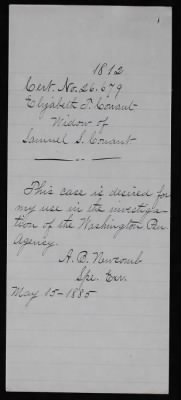 1812
Cert. No. 26.679
Elizabeth T. Conant
Widow of
Samuel S. Conant
This case is desired for
my use in the investiga-
tion of the Washington Pen.
Agency.
A. B. Newcomb
Spe. Exr.
May 15-1885